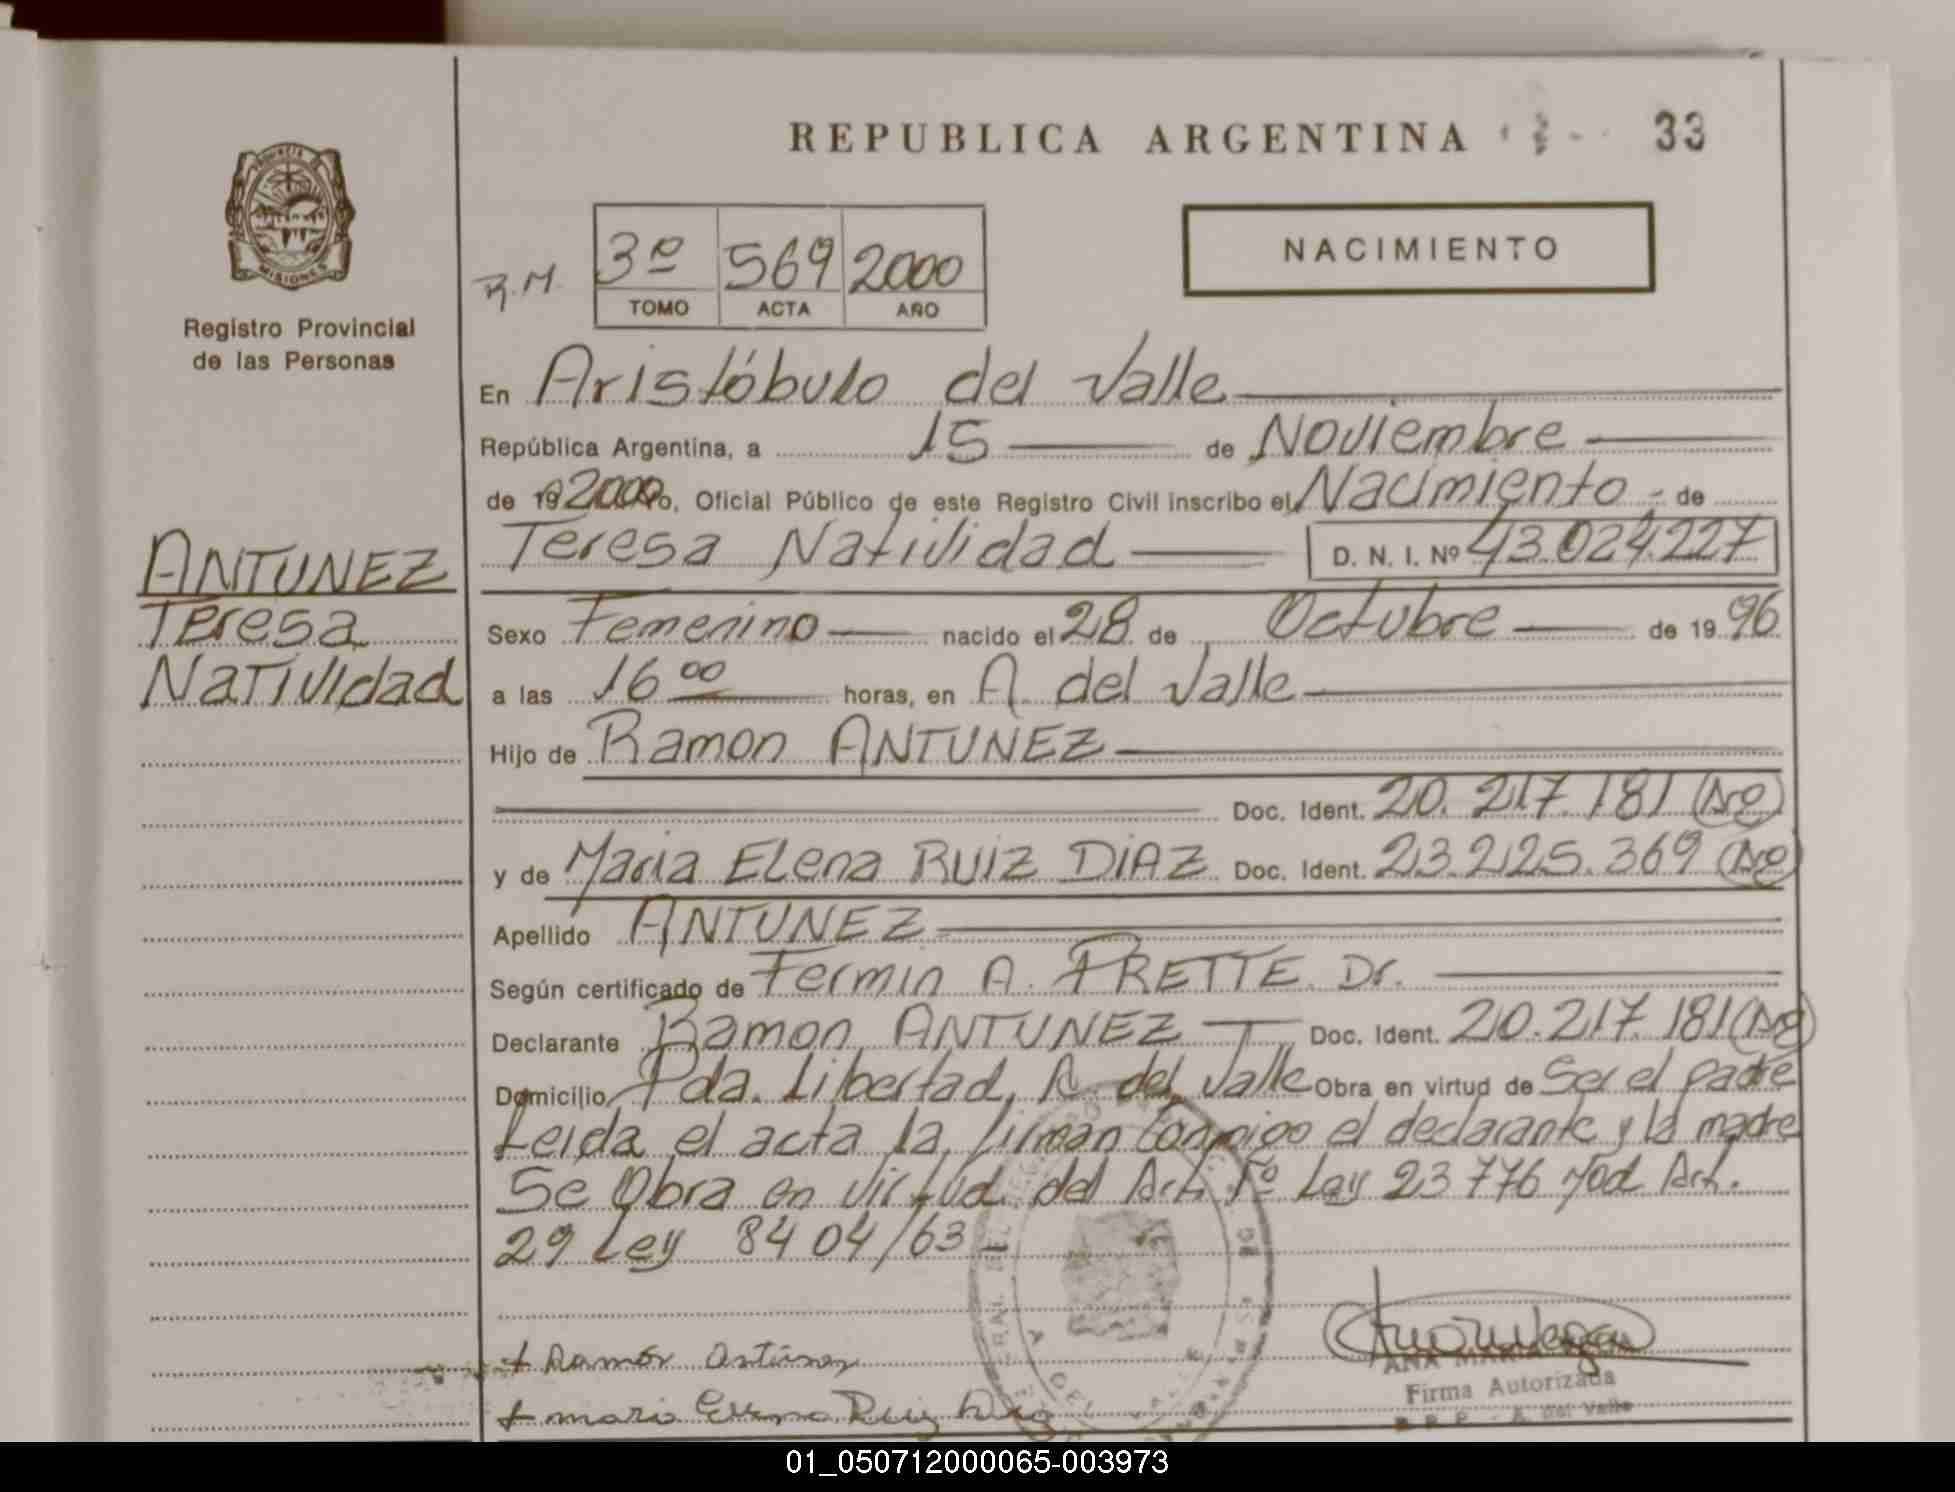 REPUBLICA ARGENTINA 33
PROVINCIA DE
MISIONES
Registro Provincial
de las Personas
R.M. 3º 569 2000
TOMO ACTA AÑO
NACIMIENTO
En Aristóbulo del Valle
República Argentina, a 15 de Noviembre
de 19 2000 Yo, Oficial Público de este Registro Civil inscribo el Nacimiento - de
Teresa Natividad D. N. I. Nº 43.024.227
ANTUNEZ
Teresa
Natividad
Sexo Femenino nacido el 28 de Octubre de 19 96
a las 16 00 horas, en A. del Valle
Hijo de Ramon ANTUNEZ
Doc. Ident. 20.217.181 (Arg)
y de Maria Elena RUIZ DIAZ Doc. Ident. 23.225.369 (Arg)
Apellido ANTUNEZ
Según certificado de Fermin A. FRETTE Dr.
Declarante Ramon ANTUNEZ Doc. Ident. 20.217.181 (Arg)
Domicilio Pda. Libertad, A. del Valle Obra en virtud de Ser el padre
Leida el acta la firman conmigo el declarante y la madre
Se Obra en virtud del Art. 1º Ley 23776 Mod Art.
29 Ley 8404/63 -
+ Ramón Antúnez
+ maria Elena Ruiz Diaz
ANA MARIA
Firma Autorizada
R.P.P. - A. del Valle
01_050712000065-003973